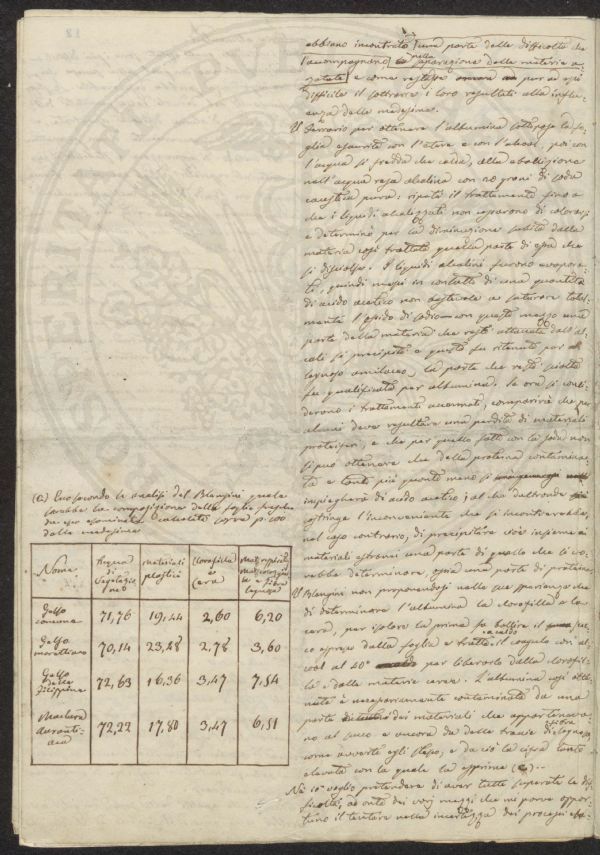 abbiano incontrato una parte delle difficoltà che
accompagnano la separazione delle materie a-
zotate e come restasse pur a essi
difficile il sottrarre i loro resultati alla influ-
enza delle medesime.
Il Ferrario per ottenere l'albumina sottopose la fo-
glia esaurita con l'etere e con l'alcool, poi con
l'acqua sì fredda che calda, alla ebollizione
nell'acqua resa alcalina con 20 grani di soda
caustica pura: ripetè il trattamento fino a
che i liquidi alcalizzati non cessarono di colorarsi
e determinò per la diminuzione subita dalla
materia così trattata quella parte di essa che
si disciolse. I liquidi alcalini furono evapora-
ti, quindi messi in contatto di una quantità
di acido acetico non bastevole a saturare total-
mente l'ossido di sodio con questo mezzo una
parte della materia che restò attaccata dall'al-
cali si precipitò e questa fu ritenuta per
legnoso amilaceo, la parte che restò sciolta
fu qualificata per albumina. Se ora si consi-
derono i trattamenti accennati, comparirà che per
alcuni deve resultare una perdita di materiali
proteici, e che per quello fatto con la soda non
si può ottenere che della proteina contamina-
ta e tanto più quanto meno si
impiegherà di acido acetico; al che dall'altronde
astringe l'inconveniente che si incontrerebbe,
nel caso contrario, di precipitare cioè insieme ai
materiali estranei una parte di quello che si vor-
rebbe determinare, ossia una parte di proteina.
Il Blengini non proponendosi nelle sue esperienze che
di determinare l'albumina la clorofilla e la
cera, per isolare la prima fa bollire il suc-
co espresso dalla foglia e tratta il coagulo con al-
cool al 40° per liberarlo dalla clorofil-
la e dalla materia cerea. L'albumina così otte-
nuta è necessariamente contaminata da una
parte dei materiali che appartenava-
no al succo e ancora da delle tracce di legnoso,
come avverte egli stesso, e da ciò la cifra tanto
elevata con la quale la esprime (a).
Nè io voglio pretendere di aver tutte superate le dif-
ficoltà; ad onta dei varj mezzi che mi parve oppor-
tuno il tentare nella incertezza dei processi
(a) Ecco secondo le analisi del Blengini quale
sarebbe la composizione della foglia
da esso esaminata calcolata sopra p. 100
della medesima
Nome
Acqua di Vegetazione
Materiali plastici
Clorofilla cera
Mat. e fibra legnosa
Gelso comune 71,76 19,44 2,60 6,20
Gelso morettiano 70,14 23,28 2,78 3,60
Gelso delle Filippine 72,63 16,36 3,47 7,54
Maclura auranti-aca 72,22 17,80 3,47 6,51